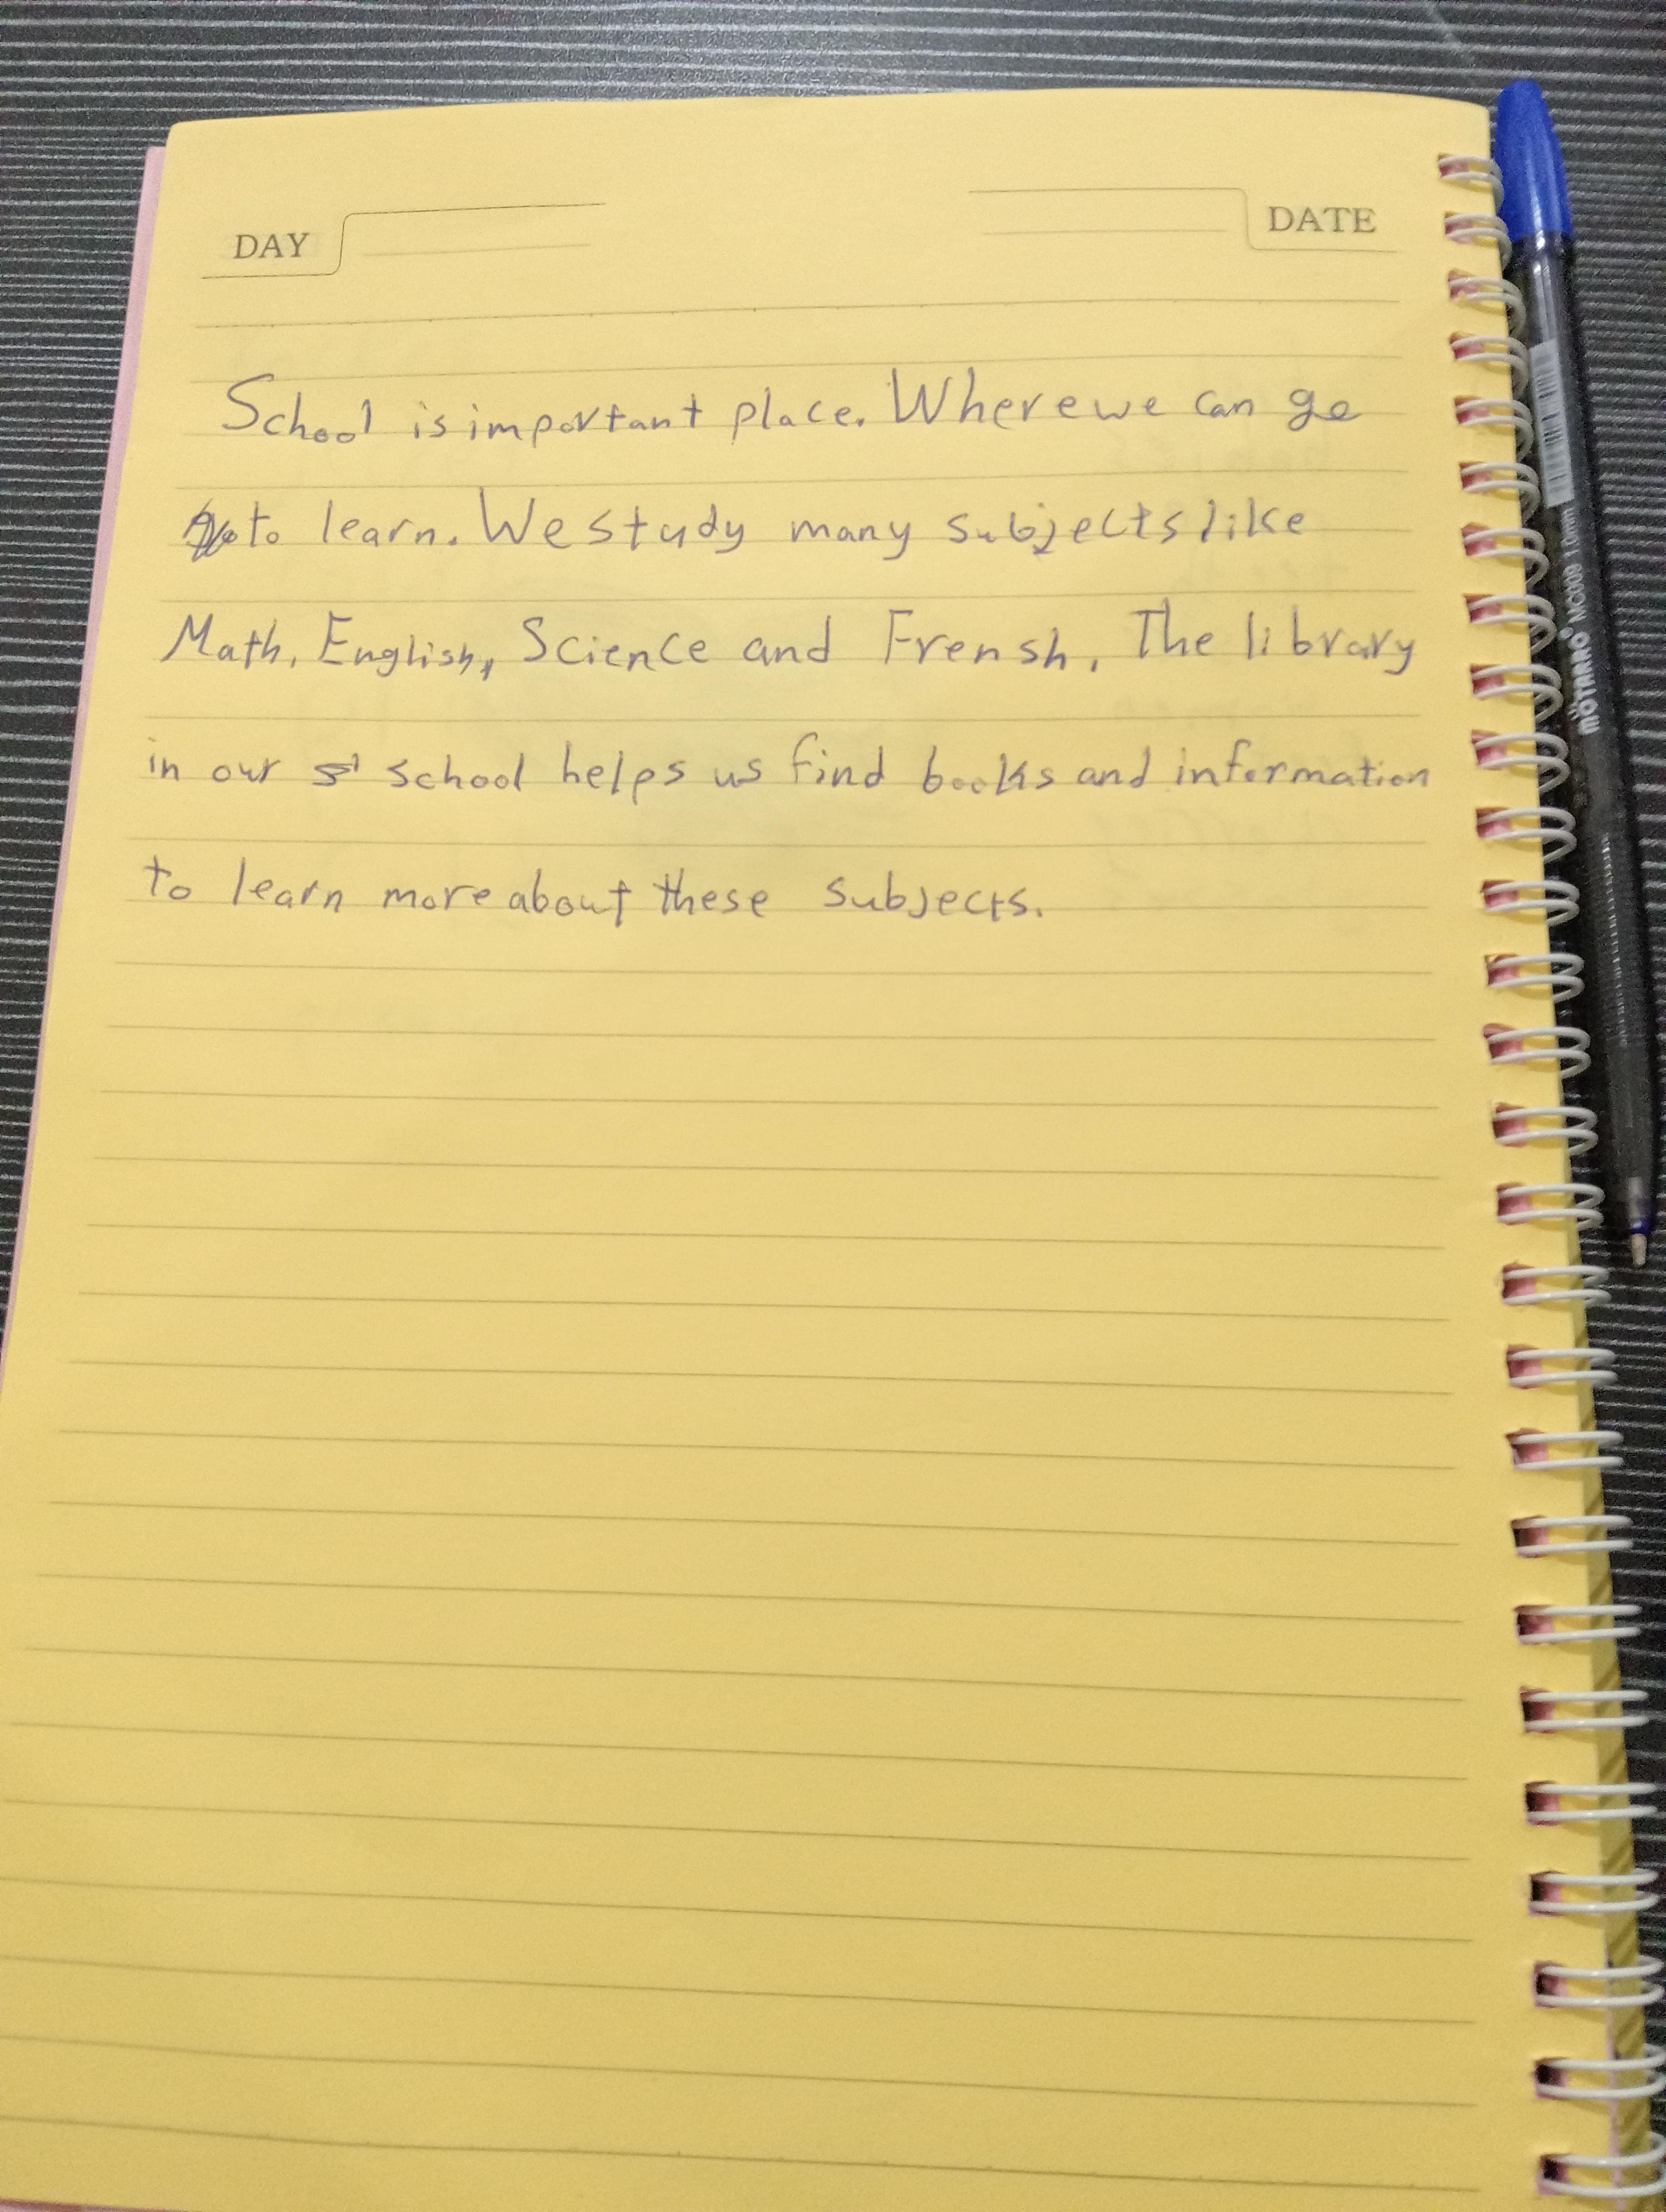 DAY
DATE
School is important place. Where we can go
to learn. We study many subjects like
Math, English, Science and Frensh. The library
in our school helps us find books and information
to learn more about these subjects.
MOTARRO® MC009 1.0mm